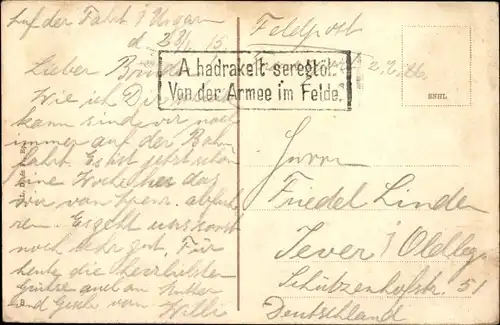 Auf der Fahrt i/Ungarn
d. 28/1. 15.
Lieber Bruder
Wie ich Dir
kann sind wir noch
immer auf der Bahn
fahrt. Es ist jetzt schon
eine Woche her das
wir von abfuh
ren. Es geht uns sonst
noch sehr gut. Für
heute die herzlichsten
Grüße auch an Mutter
und Gesche von Willi
Feldpost
A hadrakelt seregtöl.
Von der Armee im Felde.
Herrn
Friedel Linden
Jever i/Oldbg.
Schützenhofstr. 51
Deutschland